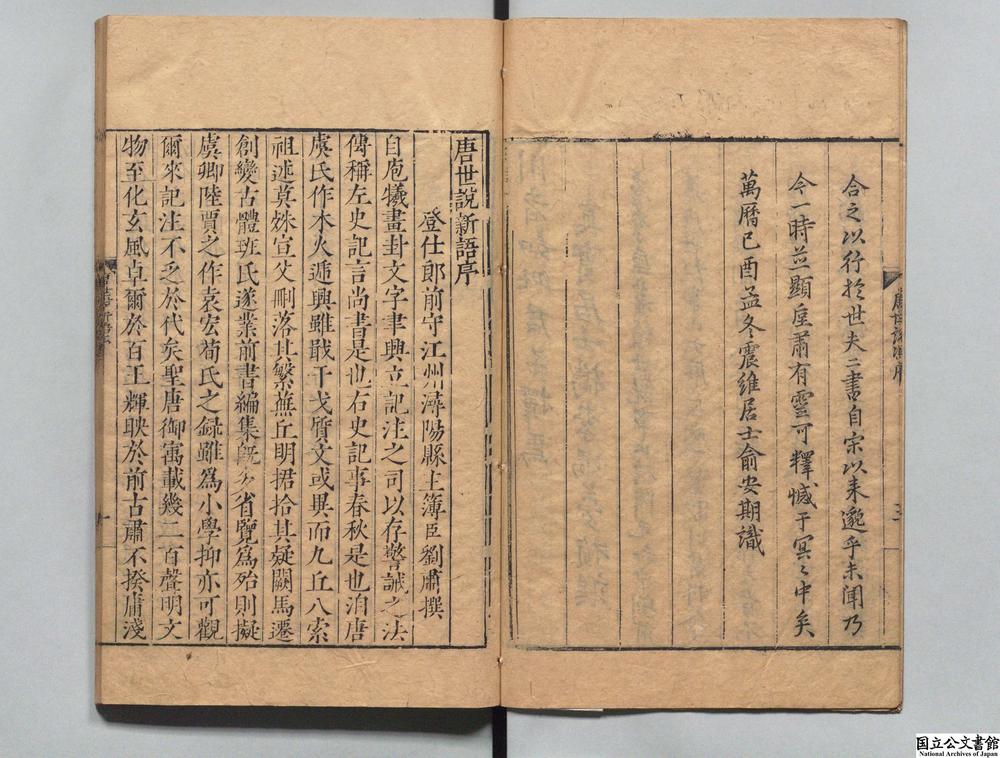 合之以行於世夫二書自宗以來邈乎未聞乃
今一時並顯座肅有靈可釋憾于冥〻中矣
萬曆己酉孟冬震維居士俞安期識
唐世說新語序
登仕郎前守江州潯陽縣主簿臣劉肅撰
自庖犧畫卦文字聿興立記注之司以存警誡之法
傳稱左史記言尚書是也右史記事春秋是也洎唐
虞氏作木火遞興雖戢干戈質文或異而九丘八索
祖述莫殊宣父刪落其繁蕪丘明捃拾其疑闕馬遷
創變古體班氏遂業前書編集既多省覽為殆則擬
虞卿陸賈之作袁宏荀氏之録雖為小學抑亦可觀
爾來記注不乏於代矣聖唐御㝢載幾二百聲明文
物至化玄風卓爾於百王輝映於前古肅不揆庸淺
一
国立公文書館
National Archives of Japan